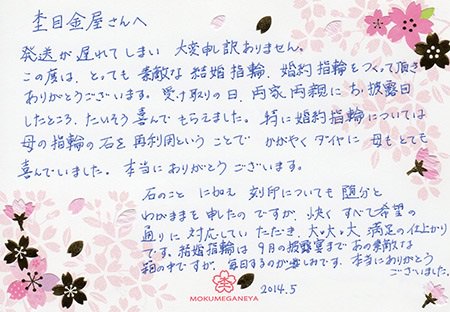 杢目金屋さんへ
発送が遅れてしまい 大変申し訳ありません。
この度は、とっても 素敵な 結婚指輪、婚約指輪をつくって頂き
ありがとうございます。受け取りの日、両家両親に お披露目
したところ、たいそう喜んで もらえました。特に婚約指輪については
母の指輪の石を再利用ということで かがやくダイヤに 母もとても
喜んでいました。本当に ありがとうございます。
石のこと に加え 刻印についても 随分と
わがままを申したの ですが、快く すべて希望の
通りに 対応していただき、大・大・大 満足の仕上がり
です。結婚指輪は 9月の披露宴まで あの素敵な
箱の中ですが、毎日するのが楽しみです。本当にありがとう
ございました。
MOKUMEGANEYA
2014.5